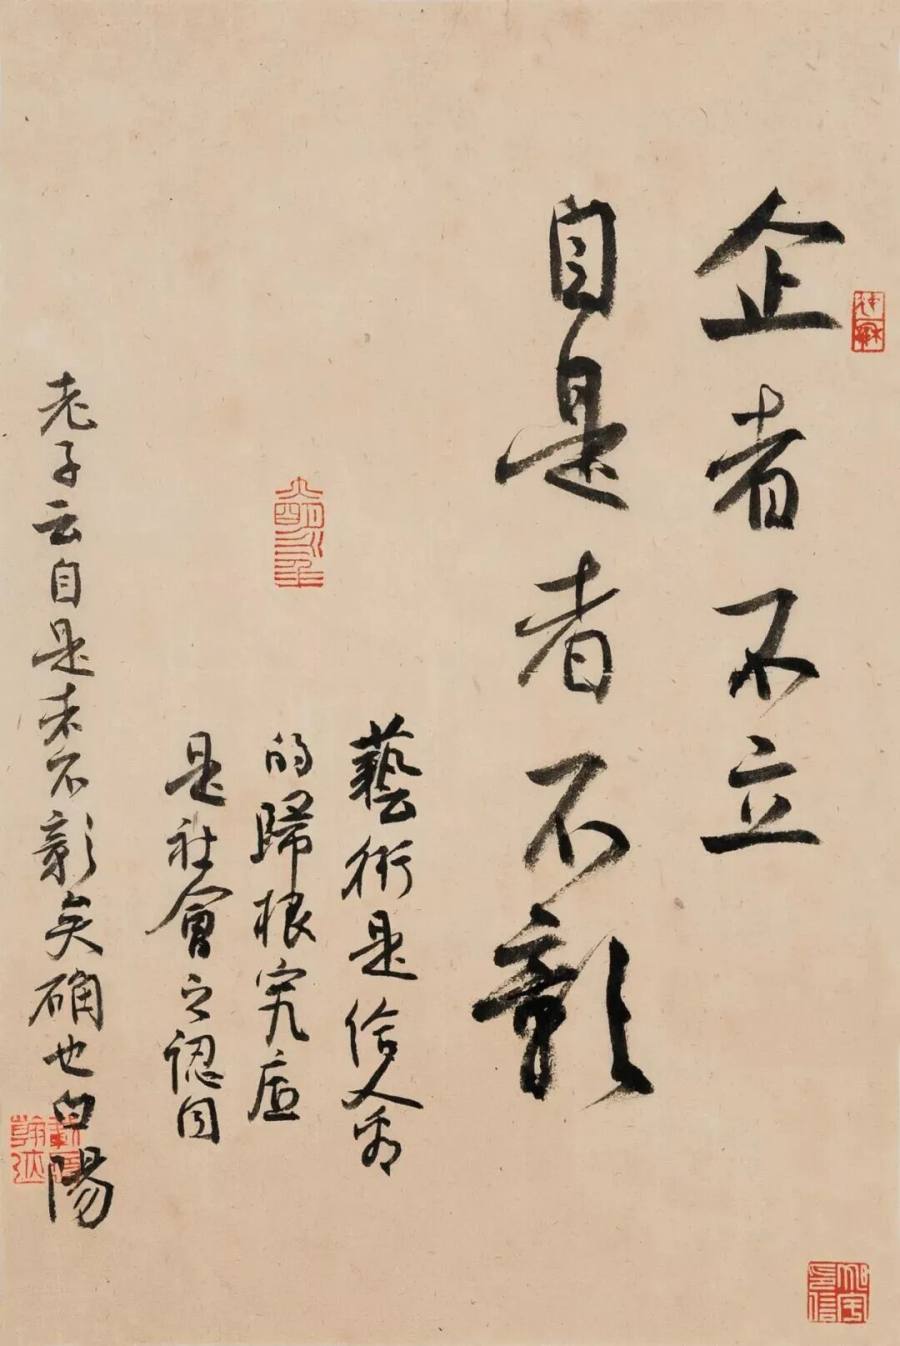 企者不立
自是者不彰
藝術是給人看
的歸根究底
是社會之認同
老子云自是者不彰矣確也白陽